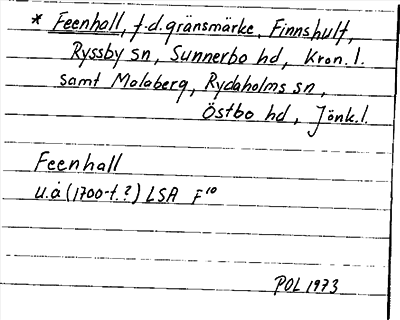 * Feenhall, f.d. gränsmärke, Finnshult,
Ryssby sn, Sunnerbo hd, Kron. l.
samt Målaberg, Rydaholms sn,
Östbo hd, Jönk. l.
Feenhall
u.å (1700-t.?) LSA F¹⁰
POL 1973